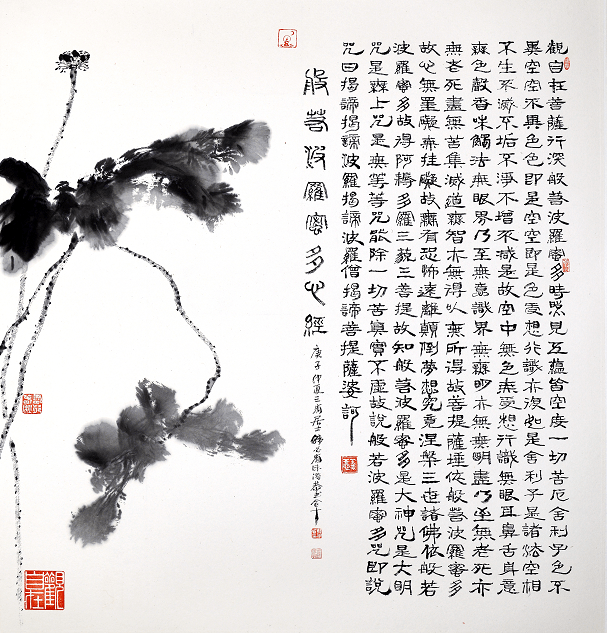 觀自在菩薩行深般若波羅蜜多時照見五蘊皆空度一切苦厄舍利子色不
異空空不異色色即是空空即是色受想行識亦復如是舍利子是諸法空相
不生不滅不垢不淨不增不減是故空中無色無受想行識無眼耳鼻舌身意
無色聲香味觸法無眼界乃至無意識界無無明亦無無明盡乃至無老死亦
無老死盡無苦集滅道無智亦無得以無所得故菩提薩埵依般若波羅蜜多
故心無罣礙無罣礙故無有恐怖遠離顛倒夢想究竟涅槃三世諸佛依般若
波羅蜜多故得阿耨多羅三藐三菩提故知般若波羅蜜多是大神咒是大明
咒是無上咒是無等等咒能除一切苦真實不虛故說般若波羅蜜多咒即說
咒曰揭諦揭諦波羅揭諦波羅僧揭諦菩提薩婆訶
般若波羅蜜多心經
庚子仲夏三居士
觀自在